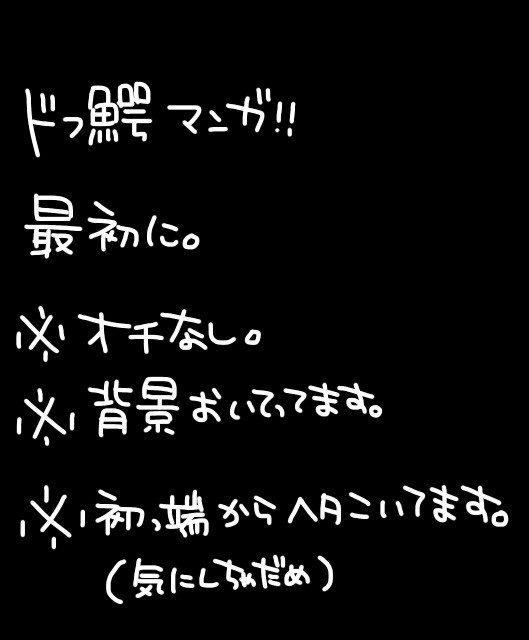 ドフ鰐マンガ!!
最初に。
※オチなし。
※背景おいてってます。
※初っ端からヘタこいてます。
(気にしちゃだめ)